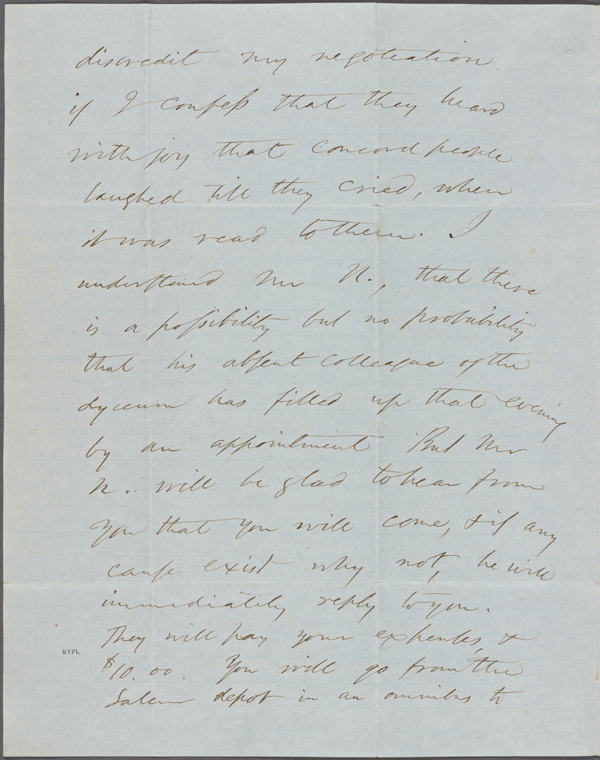 discredit my negotiation
if I confess that they heard
with joy that Concord people
laughed till they cried, when
it was read to them. I
understand Mr N., that there
is a possibility but no probability
that his absent colleague of the
Lyceum has filled up that evening
by an appointment But Mr
N. will be glad to hear from
you that you will come, & if any
cause exist why not, he will
immediately reply to you.
They will pay your expenses, &
$10.00. You will go from the
Salem depot in an omnibus to
NYPL